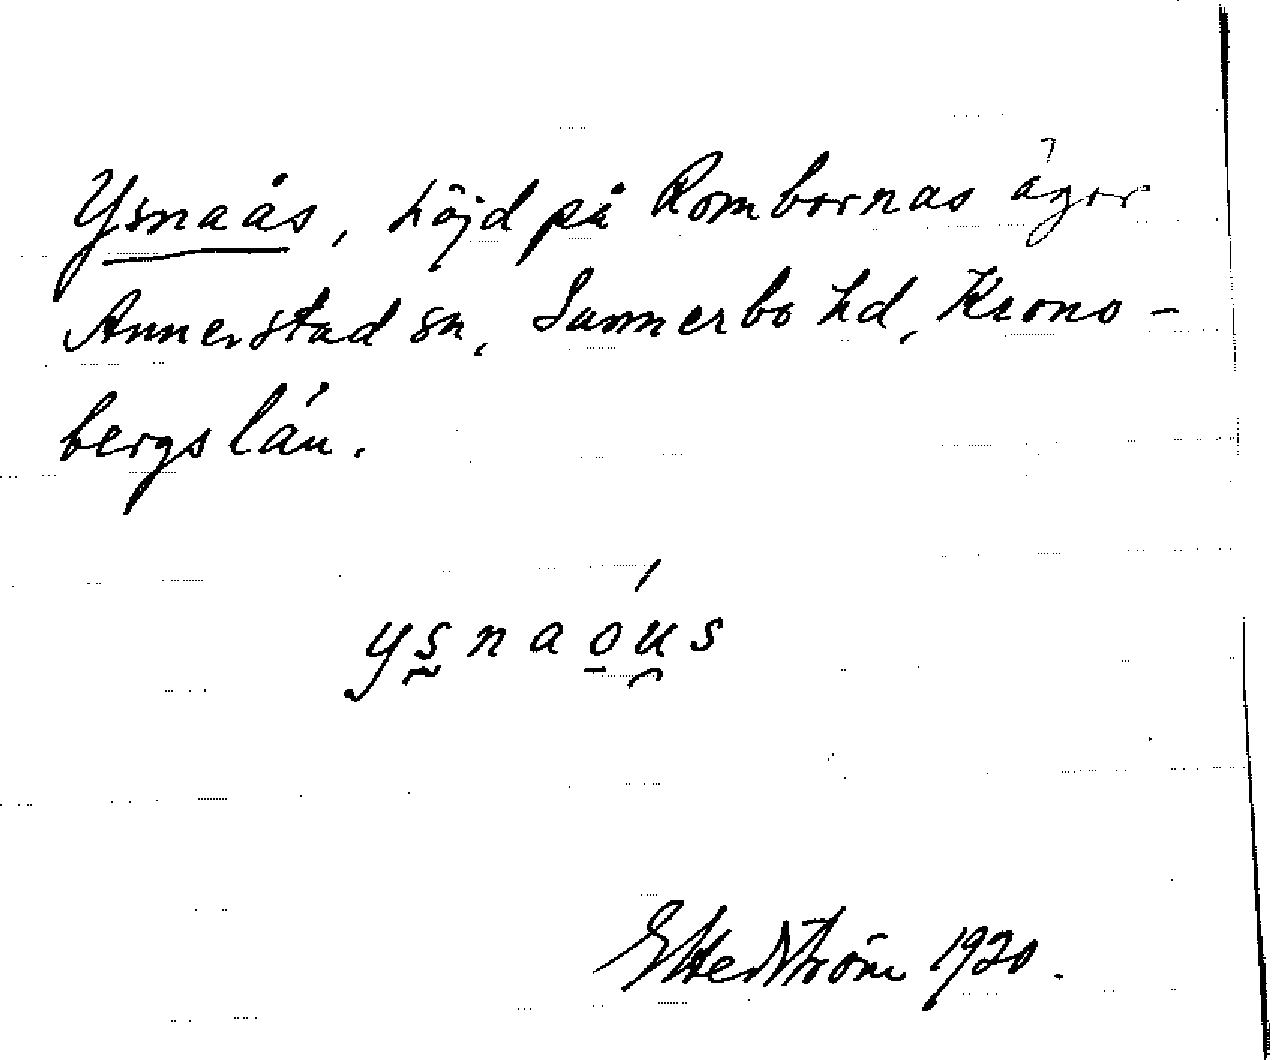 Ysnaås, höjd på Rombornas ägor
Annerstad sn, Sunnerbo hd, Krono-
bergs län.
ysnaóus
EHedström 1930.